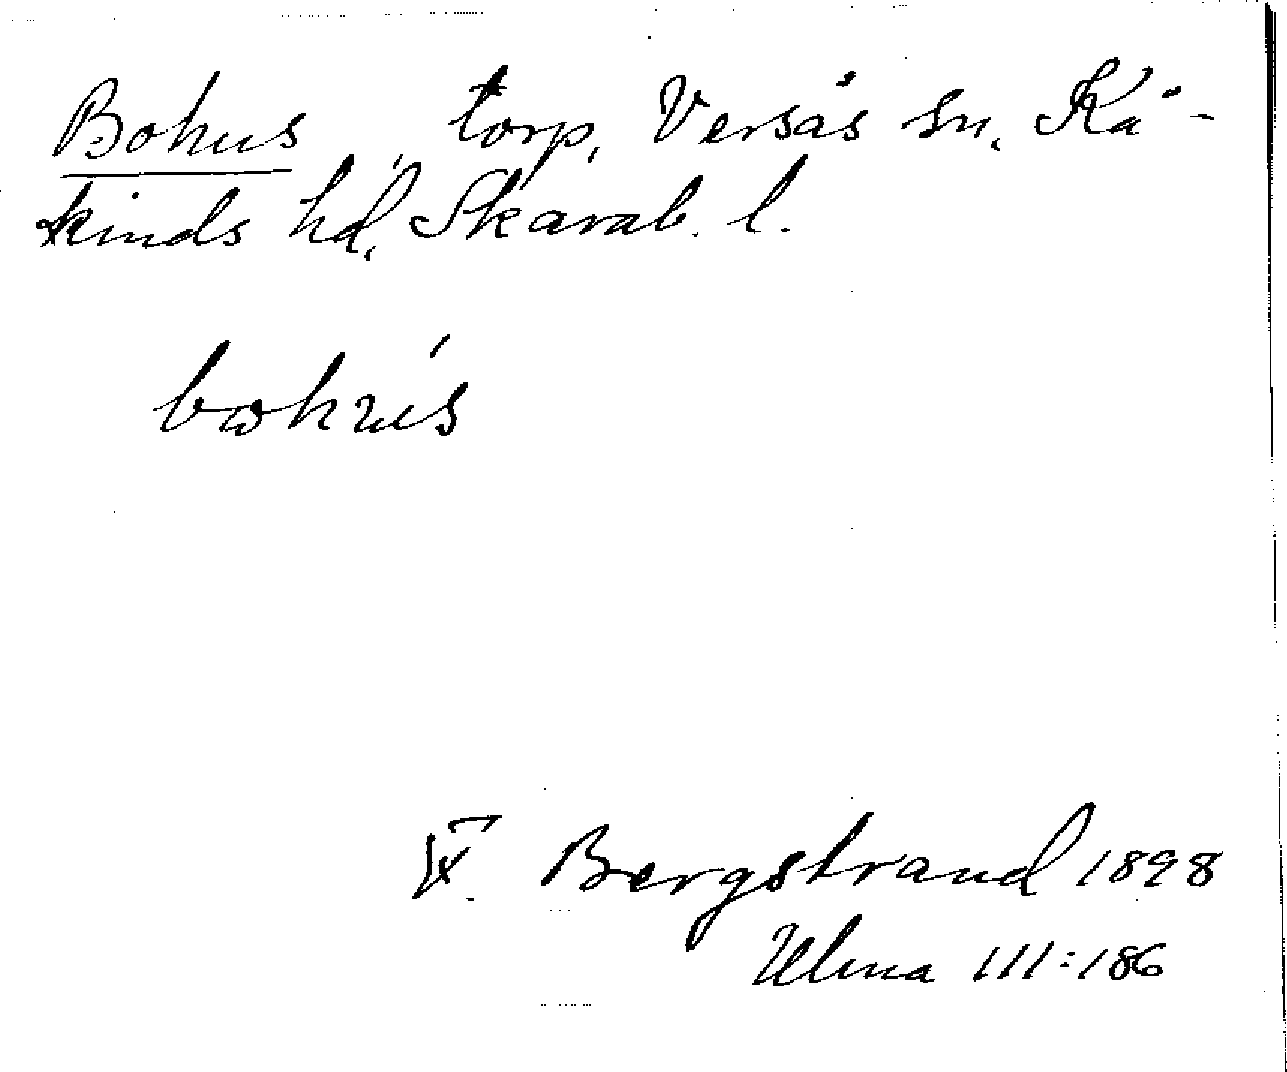 Bohus, torp, Versås sn, Kå-
kinds hd, Skarab. l.
bωhús
F. Bergstrand 1898
Ulma 111:186